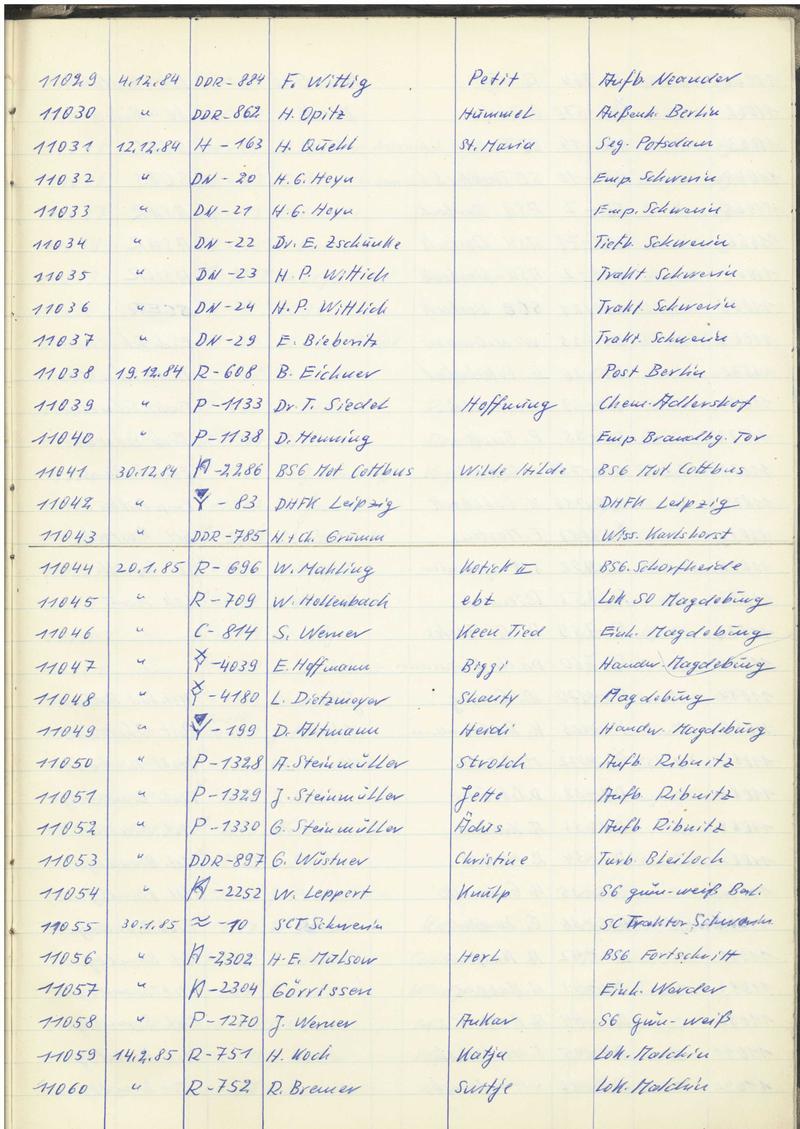 11029 4.12.84 DDR-884 F. Wittig Petit Aufb. Neander
11030 " DDR-862 H. Opitz Hummel Außenh. Berlin
11031 12.12.84 H-163 H. Quehl St. Maria Seg. Potsdam
11032 " DN-20 H.G. Heyn Emp. Schwerin
11033 " DN-21 H.G. Heyn Emp. Schwerin
11034 " DN-22 Dr. E. Zschunke Tiefb. Schwerin
11035 " DN-23 H.P. Wittich Trakt. Schwerin
11036 " DN-24 H.P. Wittich Trakt. Schwerin
11037 " DN-29 E. Bieberitz Trakt. Schwerin
11038 19.12.84 R-608 B. Eichner Post Berlin
11039 " P-1133 Dr. T. Siedel Hoffnung Chem. Adlershof
11040 " P-1138 D. Henning Emp. Brandbg. Tor
11041 30.12.84 -2286 BSG Mot Cottbus Wilde Hilde BSG Mot Cottbus
11042 " -83 DHFK Leipzig DHFK Leipzig
11043 " DDR-785 H.+Ch. Grumm Wiss. Karlshorst
11044 20.1.85 R-696 W. Mahling Kotick II BSG. Schorfheide
11045 " R-709 W. Hollenbach ebt Lok. SO Magdeburg
11046 " C-814 S. Werner Keen Tied Einh. Magdeburg
11047 " -4039 E. Hoffmann Biggi Handw. Magdeburg
11048 " -4180 L. Dietzmeyer Shanty Magdeburg
11049 " -199 D. Altmann Heidi Handw. Magdeburg
11050 " P-1328 A. Steinmüller Strolch Aufb. Ribnitz
11051 " P-1329 J. Steinmüller Jette Aufb. Ribnitz
11052 " P-1330 G. Steinmüller Ädus Aufb. Ribnitz
11053 " DDR-897 G. Wüstner Christine Turb. Bleiloch
11054 " -2252 W. Leppert Knulp SG grün-weiß Berl.
11055 30.1.85 ≈-10 SCT Schwerin SC Traktor Schwerin
11056 " -2302 H.-E. Malsow Herl BSG Fortschritt
11057 " -2304 Görrissen Einh. Werder
11058 " P-1270 J. Werner Ankar SG grün-weiß
11059 14.2.85 R-751 H. Koch Katja Lok. Malchin
11060 " R-752 R. Bremer Suttje Lok. Malchin